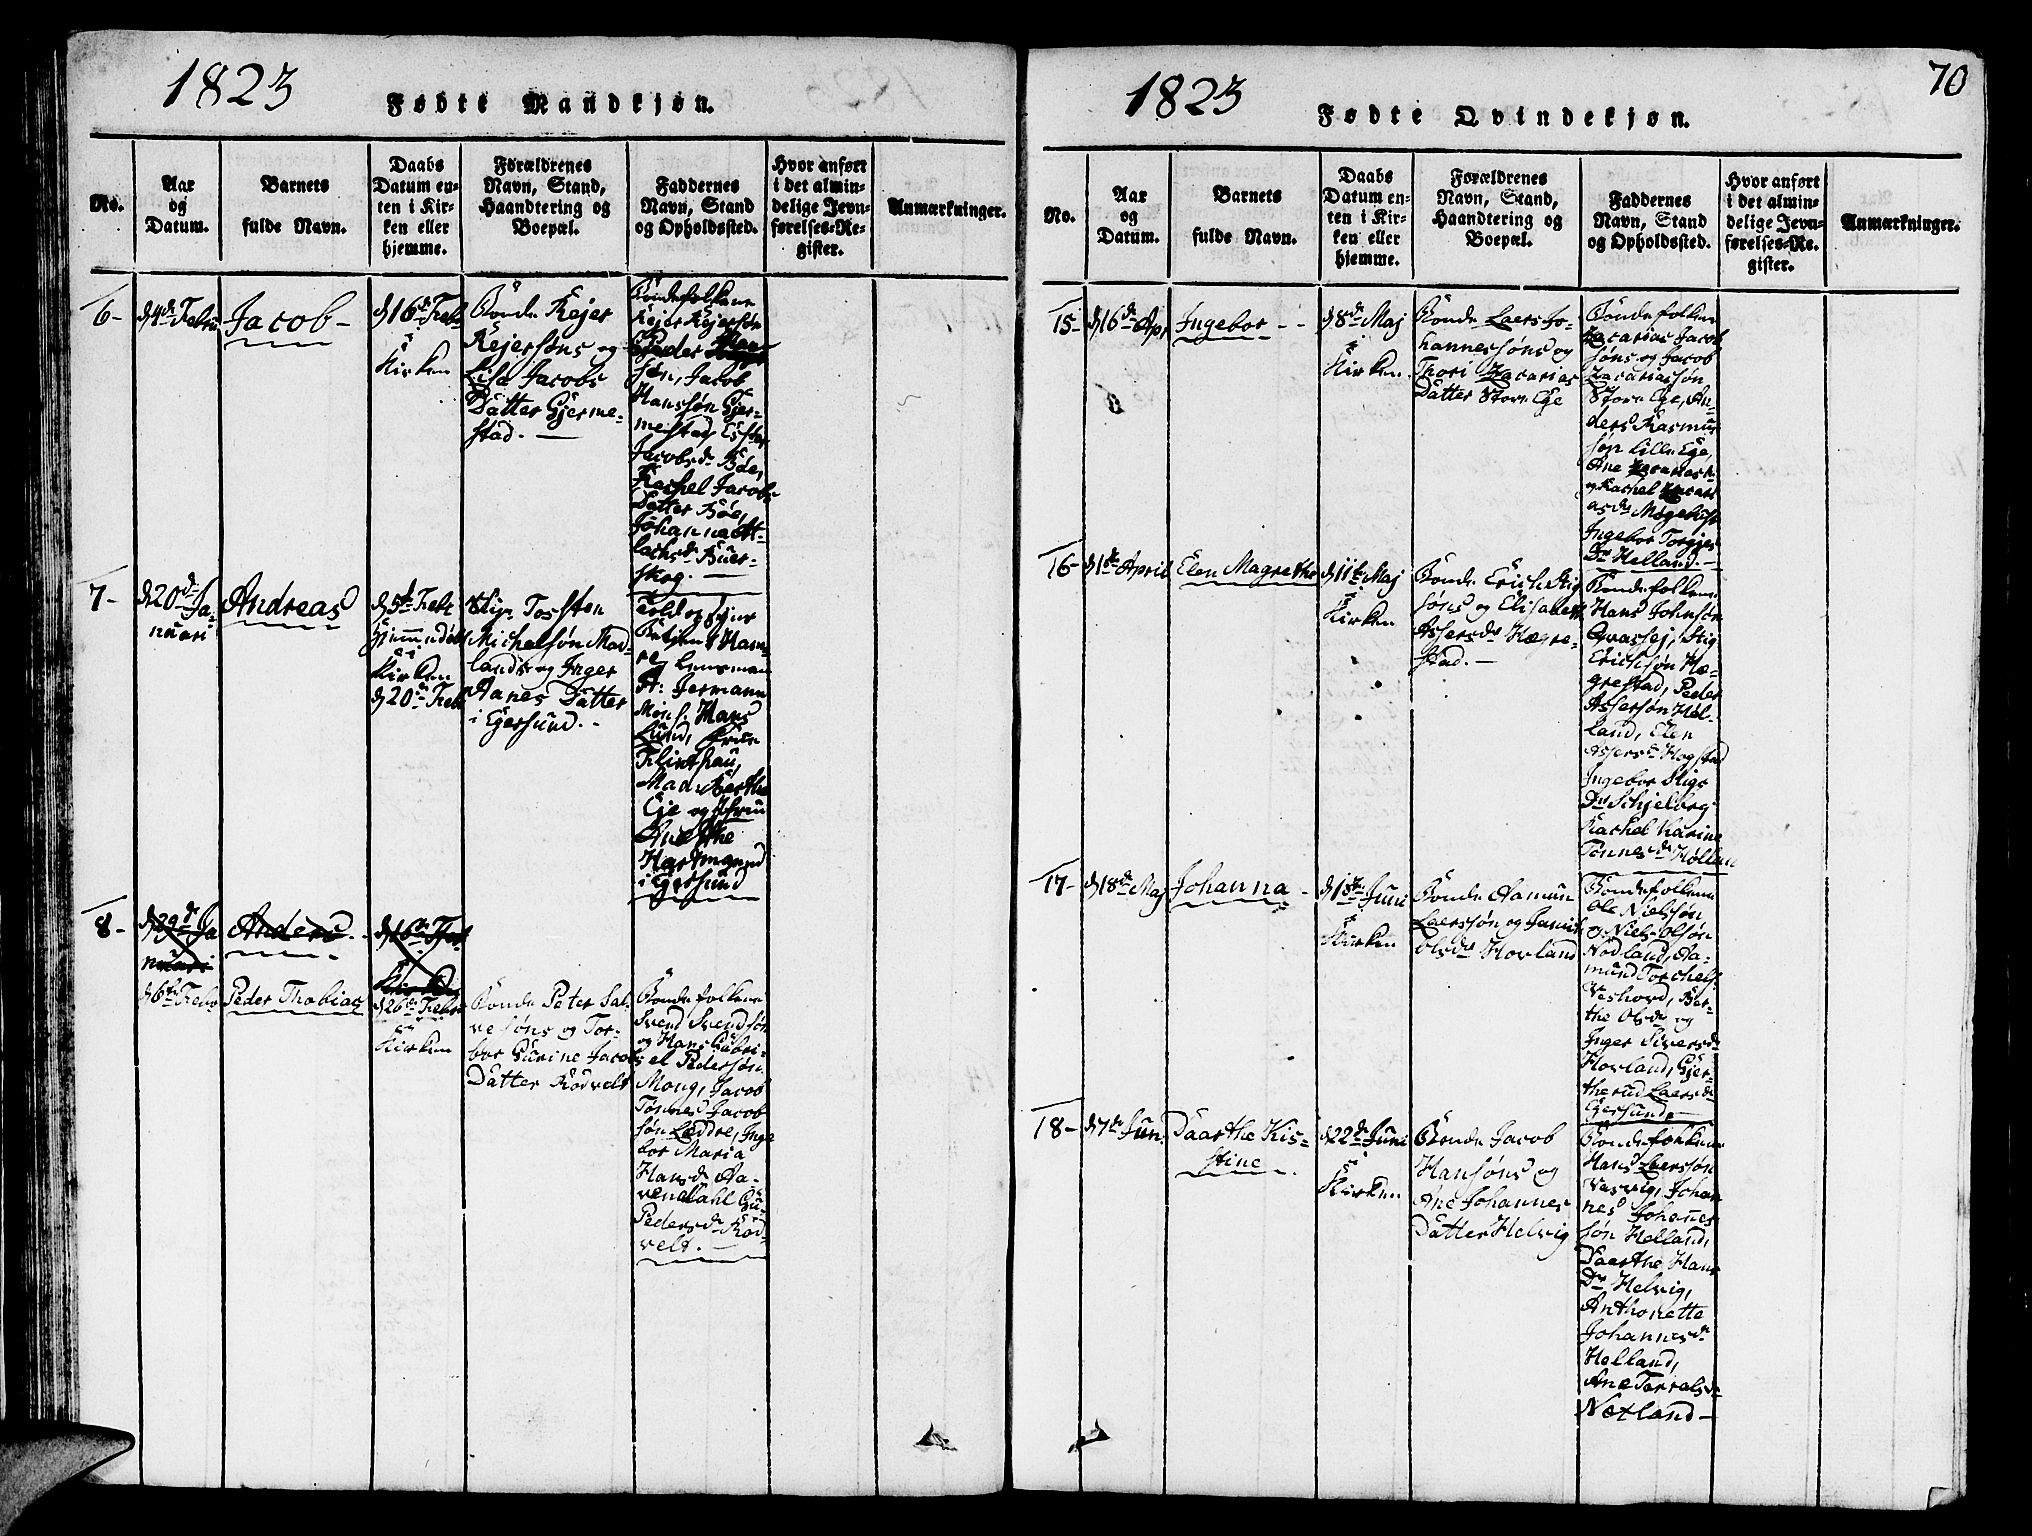 1823
Fødte Mandkjøn.
No.
Aar
og
Datum.
Barnets
fulde Navn.
Daabs
Datum en-
ten i Kir-
ken eller
hjemme.
Forældrenes
Navn, Stand,
Haandtering og
Boepæl.
Faddernes
Navn, Stand
og Opholdssted.
Hvor anført
i det almin-
delige Jevn-
førelses-Re-
gister.
Anmærkninger.
6-
d 4de Febru
Jacob-
d 16de Febr
i
Kirken
Bonde Rejer
Rejersøns og
Lise Jacobs
Datter Gjerme-
stad. -
Bondefolkene
Rejer Rejersøn
Peder Han-
søn, Jacob
Hanssøn Gjer-
mestad, Ester
Jacobsdr Böe,
Rachel Jacobs
Datter Böe,
Johanna At-
lachsdr Buer-
skog. -
7-
d 20de Ja-
nuari
Andreas
d 5te Febr
Hjemmedøbt
i
Kirken
d 20de Febr
Styr Tosten
Michelsøn Mad-
lands og Inger
Aanes Datter
i Egersund. -
Told og
Betjent Ham-
re, Lensman
Fr: Jermann
Mons. Hans
Lund, Frue
Flinthau,
Mad. Berthe
Eje og Jfru
Anethe
Hartmand
i Egersund
8-
d 29de Ja
nuari
Anders -
d 16de Febr
Kirke
d 6te Febr
Peder Thobias
d 26de Febr
i
Kirken
Bonde Peter Sal-
vesøns og Tor-
bor Gurine Jacobs
Datter Rødvelt
Bondefolkene
Svend Svendsøn
og Hans Gabri-
el Pedersøn
Mong, Jacob
Tønnes Jacob
søn Leddre, Inge
bor Maria
Hansdr Aa-
rendahl Gu-
Pedersdr Rød-
velt. -
1823
Fødte Qvindekjøn.
70
No.
Aar
og
Datum.
Barnets
fulde Navn.
Daabs
Datum en-
ten i Kir-
ken eller
hjemme.
Forældrenes
Navn, Stand,
Haandtering og
Boepæl.
Faddernes
Navn, Stand
og Opholdssted.
Hvor anført
i det almin-
delige Jevn-
førelses-Re-
gister.
Anmærkninger.
15-
d 16de Apr
Ingebor - -
d 8de Maj
i
Kirken
Bonde Laers Jo-
hannessøns og
Thori Zacarias
Datter Store Ege
Bondefolkene
Zacarias Jacob
søns og Jacob
Zacariassøn
Store Ege, An-
ders Rasmus
søn Lille Ege,
Ane Zacariasdr
og Rachel Zacari
asdr Møgebust
Ingebor Torgjes
Dr Helland. -
16-
d 1ste April
Elen Magrethe
d 11te Maj
i
Kirken
Bonde Erich Stig
søns og Elisabeth
Assersdr Hægre-
stad. -
Bondefolkene
Hans Johnsøn
Qvassej, Stig
Erichsøn Hæ-
grestad, Peder
Assersøn Hel-
land, Elen
Assersdr Hogstad
Ingebor Stigs
Dr Schjelbreg
Rachel Karine
Tønnesdr Hølland
17-
d 18de Maj
Johanna -
d 1ste Juni
i
Kirken
Bonde Aamun
Laerssøn og Janik
Olsdr Hovland
Bondefolkene
Ole Nielssøn
og Niels Olsøn
Hodland, Aa-
mund Torchels
Veshovd, Ber-
the Olsdr og
Inger Siversdr
Hovland, Gjer-
therud Laersdr
Egersund -
18-
d 7de Juni
Daarthe Kis-
stine
d 22de Juni
i
Kirken
Bonde Jacob
Hansøns og
Ane Johannes
Datter Helvig
Bondefolkene
Hans Laerssøn
Vasvig, Johan
nes Johannes
søn Helland,
Daarthe Hans
Dr Helvig,
Anthonette
Johannesdr
Helland,
Ane Tarrelsdr
Nætland -